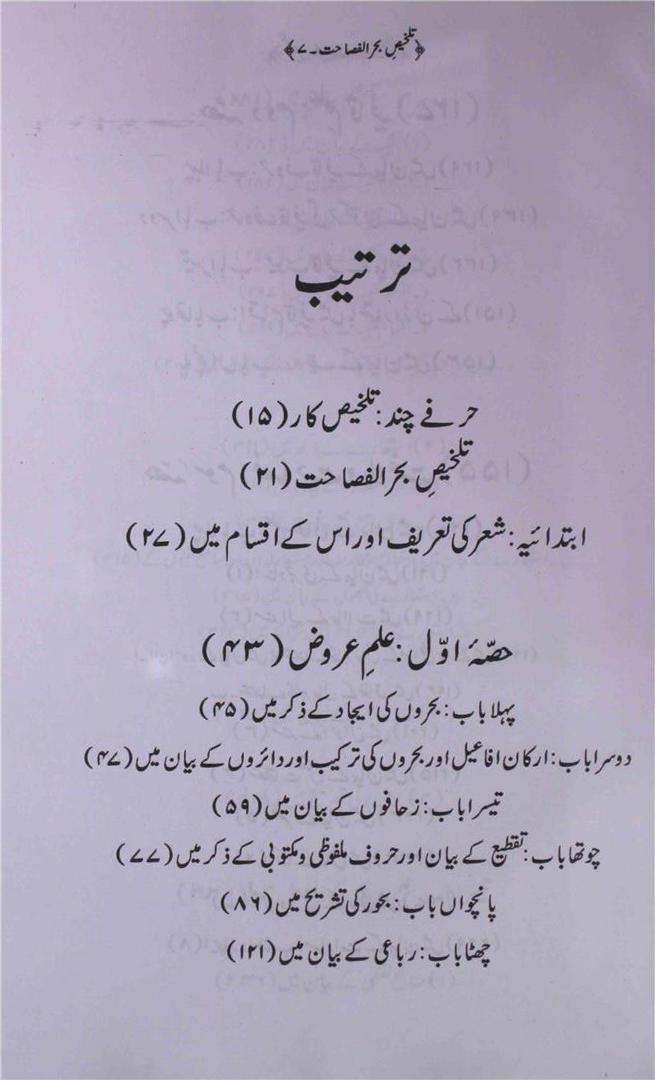 ﴿تلخیصِ بحر الفصاحت ـ ۷﴾
ترتیب
حرفے چند : تلخیص کار (۱۵)
تلخیصِ بحر الفصاحت (۲۱)
ابتدائیہ : شعر کی تعریف اور اس کے اقسام میں (۲۷)
حصّۂ اوّل : علمِ عروض (۴۳)
پہلا باب : بحروں کی ایجاد کے ذکر میں (۴۵)
دوسرا باب : ارکان افاعیل اور بحروں کی ترکیب اور دائروں کے بیان میں (۴۷)
تیسرا باب : زحافوں کے بیان میں (۵۹)
چوتھا باب : تقطیع کے بیان اور حروف ملفوظی و مکتوبی کے ذکر میں (۷۷)
پانچواں باب : بحور کی تشریح میں (۸۶)
چھٹا باب : رباعی کے بیان میں (۱۲۱)